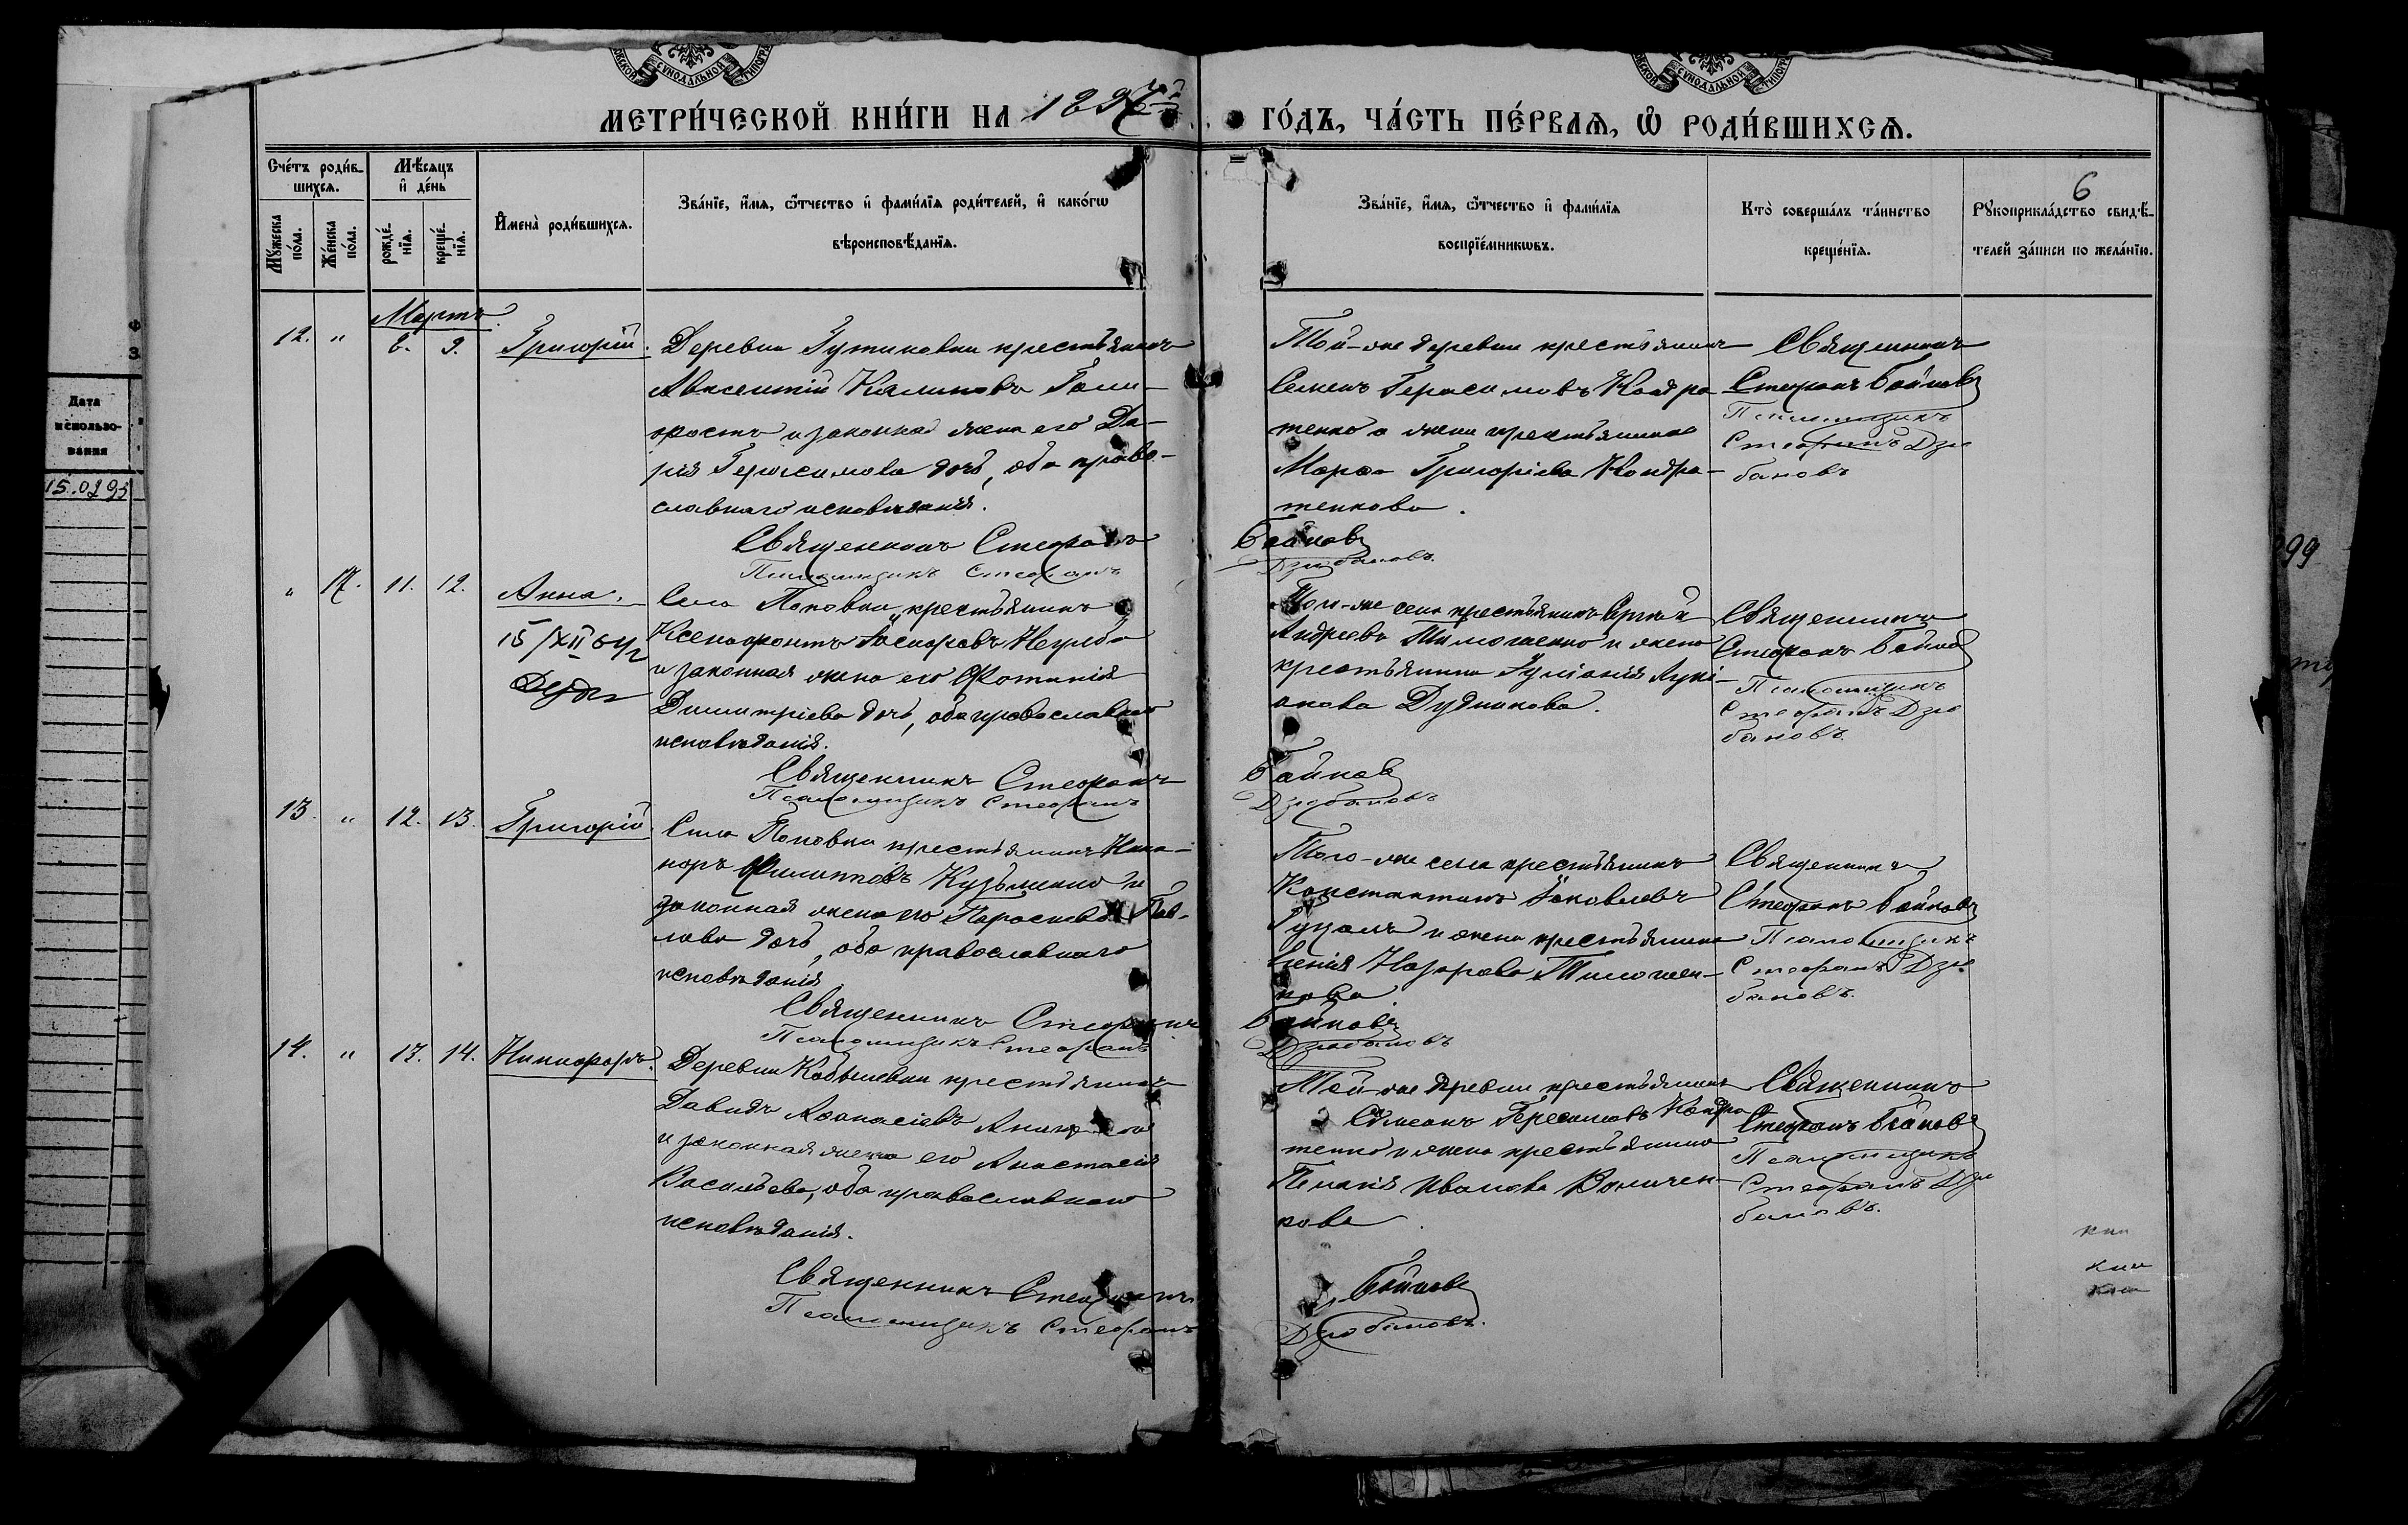 МЕТРИ́ЧЕСКОЙ КНИ́ГИ НА 1897й ГО́ДЪ, ЧА́СТЬ ПЕ́РВАЯ, Ѡ РОДИ́ВШИХСЯ.
6
Сче́тъ роди́в-
шихся.
Мѣсяцъ
и де́нь
Му́жеска
по́ла.
Же́нска
по́ла.
рожде́-
нїя.
креще́-
нїя.
Имена̀ роди́вшихся.
Зва́нїе, и́мя, ѻ́тчество и фами́лїя роди́телей, и како́гѡ
вѣроисповѣ́данїя.
Зва́нїе, и́мя, ѻ́тчество и фами́лїя
воспрїе́мникѡвъ.
Кто̀ соверша́лъ та́инство
креще́нїя.
Рꙋкоприкла́дство свидѣ́-
телей за́писи по жела́нїю.
Мартъ.
12. " 8. 9. Григорій.
Деревни крестьянинъ
Авксентій
и законная жена его Да-
рія Герасимова дочь, оба право-
славнаго исповѣданія.
Священникъ Стефанъ Бойковъ
Псаломщикъ Стефанъ Дзюбановъ.
Той-же деревни крестьянинъ
Семенъ Герасимовъ Кондра-
тенко и жена крестьянина
Григоріева Кондра-
тенкова.
Священникъ
Стефанъ Бойковъ
Псаломщикъ
Стефанъ Дзю
бановъ
" 11. 12. Анна.
15/XII
Села Поповки крестьянинъ
Ксенофонтъ Іосифовъ
и законная жена его Фотинія
Димитріева дочь, оба православнаго
исповѣданія.
Священникъ Стефанъ Бойковъ
Псаломщикъ Стефанъ Дзюбановъ
Того-же села крестьянинъ Сергѣй
Андреевъ Тимошенко и жена
крестьянина Іуліанія Лукі-
анова Дудникова.
Священникъ
Стефанъ Бойковъ
Псаломщикъ
Стефанъ Дзю
бановъ.
13. " 12. 13. Григорій.
Села Поповки крестьянинъ Ника-
норъ Филипповъ Кузьменко и
законная жена его Параскева Пав-
лова дочь, оба православнаго
исповѣданія
Священникъ Стефанъ Бойковъ
Псаломщикъ Стефанъ Дзюбановъ
Того-же села крестьянинъ
Константинъ Іаковлевъ
и жена крестьянина
Ксенія Назарова Тимошен-
кова
Священникъ
Стефанъ Бойковъ
Псаломщикъ
Стефанъ Дзю
бановъ.
14. " 13. 14. Никифоръ.
Деревни крестьянинъ
Давидъ Аѳанасіевъ
и законная жена его Анастасія
Васильева, оба православнаго
исповѣданія.
Священникъ Стефанъ Бойковъ
Псаломщикъ Стефанъ Дзюбановъ.
Той-же деревни крестьянинъ
Симеонъ Герасимовъ Кондра
тенко и жена крестьянина
Пелагія Иванова
кова.
Священникъ
Стефанъ Бойковъ
Псаломщикъ
Стефанъ Дзю
бановъ.
Дата
использо-
вания
15.0295
99